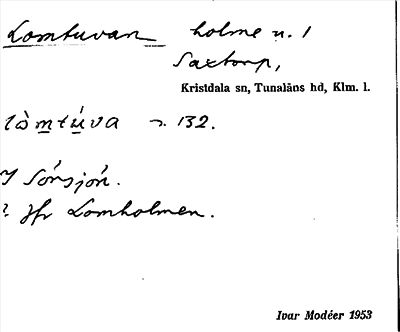 Lomtuvan holme u. 1
Saxtorp,
Kristdala sn, Tunaläns hd, Klm. l.
lòmtúva s. 132.
I Sörsjön.
? Jfr Lomholmen.
Ivar Modéer 1953